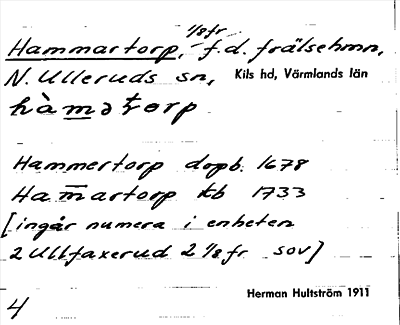 1/8 fr
Hammartorp, f.d. frälsehmn,
N. Ulleruds sn, Kils hd, Värmlands län
hàmətorp
Hammertorp dopb. 1678
Ham̅artorp kb 1733
[ingår numera i enheten
2 Ullfaxerud 2 1/8 fr SOV]
Herman Hultström 1911
4